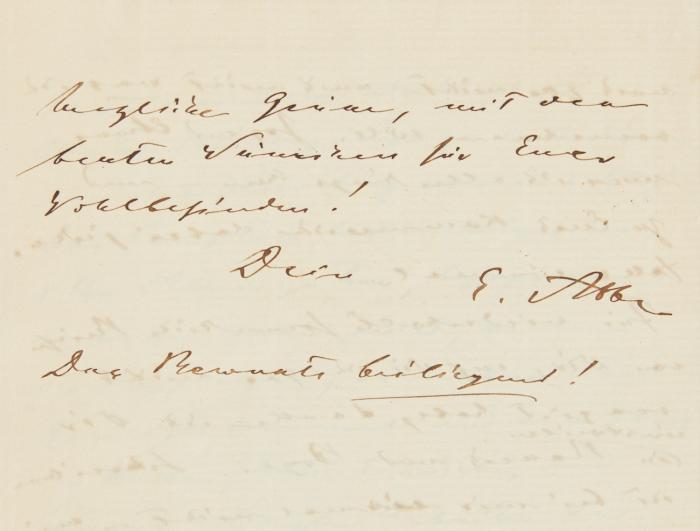 herzliche Grüsse, mit den
besten Wünschen für Euer
Wohlbefinden!
Dein
E. Abbe
Das Bewusste beiliegend!